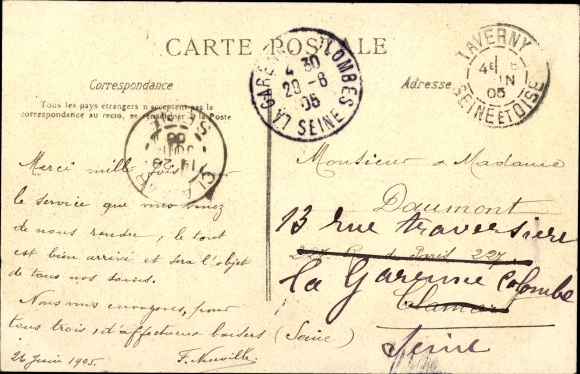 CARTE POSTALE
Correspondance
Adresse
Tous les pays étrangers n'acceptent pas la
correspondance au recto, se renseigner à la Poste
LA GARENNE COLOMBES
4 30
29 -6
05
SEINE
TAVERNY
4E
JUIN
05
SEINE ET OISE
Merci mille fois pour
le service que vous venez
de nous rendre, le tout
est bien arrivé et sera l'objet
de tous nos soins.
Nous vous envoyons, pour
tous trois, d'affectueux baisers
26 Juin 1905. F. Neuville
Monsieur & Madame
Daumont
13 rue traversière
227 de Paris 227
la Garenne Colombe
Clamart
(Seine)
Seine